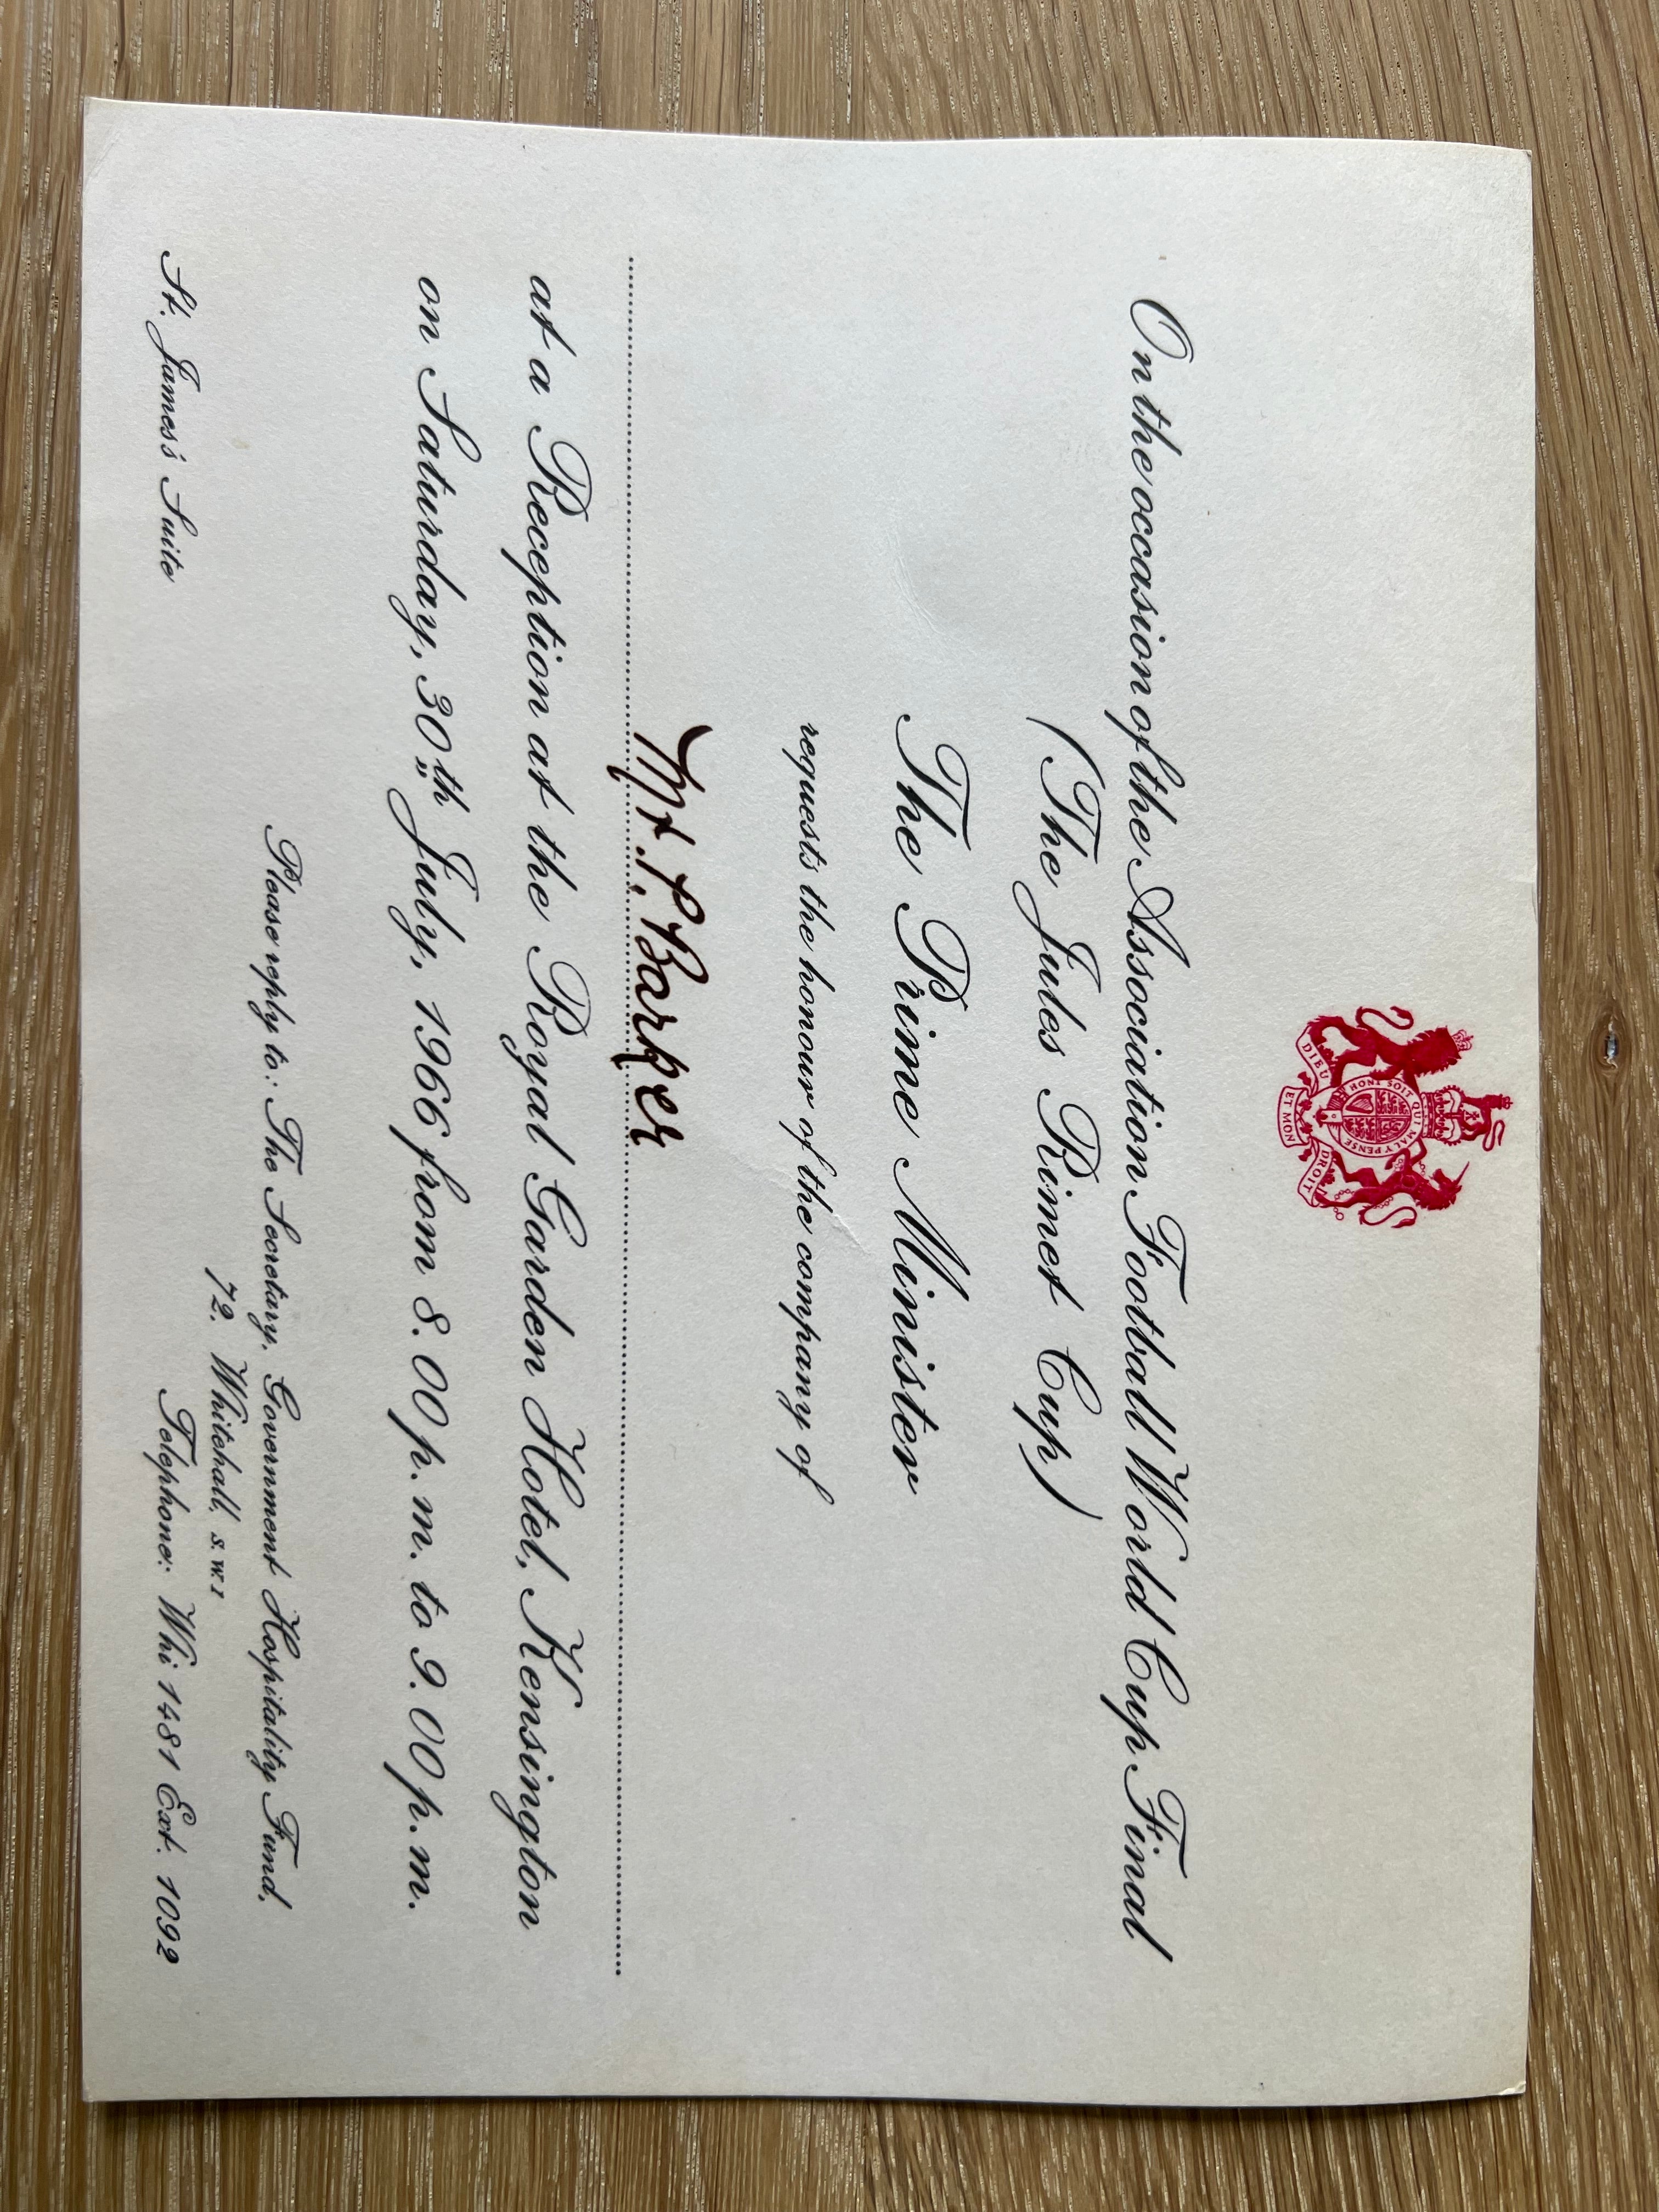 HONI SOIT QUI MAL Y PENSE
DIEU ET MON DROIT
On the occasion of the Association Football World Cup Final
(The Jules Rimet Cup)
The Prime Minister
requests the honour of the company of
Mr. P. Barker
at a Reception at the Royal Garden Hotel, Kensington
on Saturday, 30th July, 1966 from 8.00 p.m. to 9.00 p.m.
Please reply to: The Secretary, Government Hospitality Fund,
72, Whitehall, S.W.1
St. James's Suite
Telephone: Whi 1481 Ext. 1092